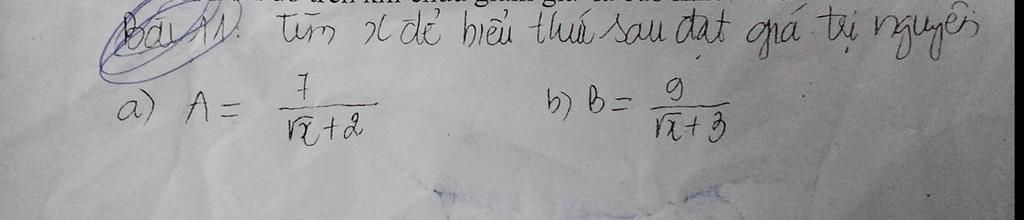 Bài 11: tìm x để biểu thức sau đạt giá trị nguyên
a) A = 7/(√x+2) b) B = 9/(√x+3)